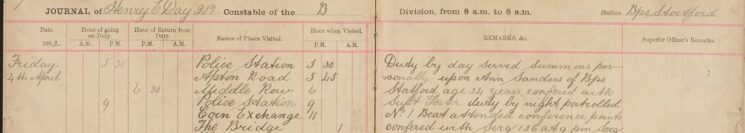 JOURNAL of Henry E Day 213 Constable of the B Division, from 8 a.m. to 8 a.m. Station Bps Stortford
Date. Hour of going on Duty. Hour of Return from Duty. Names of Places Visited. Hour when Visited. REMARKS, &c. Superior Officer's Remarks.
190 2. A.M. P.M. A.M. P.M. P.M. A.M.
Friday 5 30 Police Station 5 30 Duty by day served summons per-
4th April Apton Road 5 45 sonally upon Ann Sanders of Bps
6 30 Middle Row 6 Stortford age 34 years, confered with
9 Police Station 9 Supt duty by night, patrolled
Corn Exchange 11 No 1 Beat attended conference points
The Bridge 1 confered with Serg 136 at 9 pm Serg